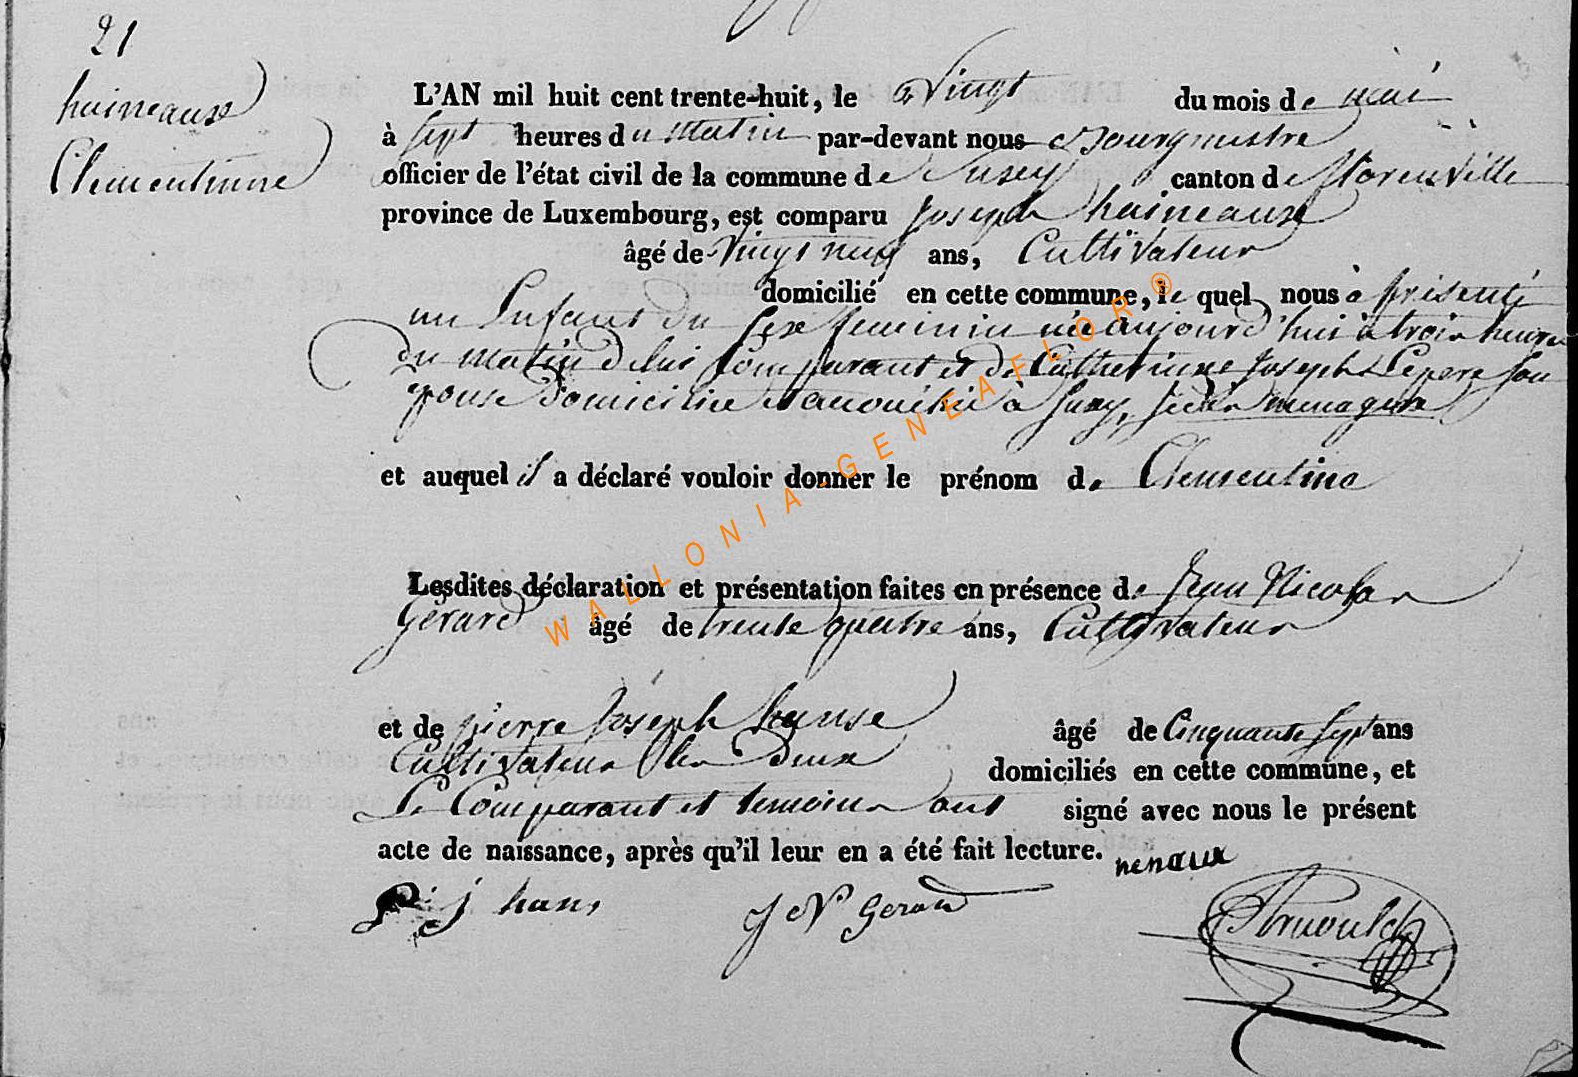 21
haineaux
Clementinne
L'AN mil huit cent trente-huit, le Vingt du mois de mai
à sept heures du Matin par-devant nous Bourgmestre
officier de l'état civil de la commune de Suxey canton de florenville
province de Luxembourg, est comparu Joseph haineaux
âgé de Vingt neuf ans, Cultivateur
domicilié en cette commune, le quel nous à présenté
un Enfant du sexe feminin née aujourd'hui à trois heures
du Matin de lui Comparant et de Catherinne Joseph Lepere son
epouse domiciliée à Suxy, menagere
et auquel il a déclaré vouloir donner le prénom de Clementine
Lesdites déclaration et présentation faites en présence de Jean Nicolas
Gérard âgé de trente quatre ans, Cultivateur
et de pierre Joseph hanse âgé de Cinquante sept ans
Cultivateur les deux domiciliés en cette commune, et
le Comparant et temoins ont signé avec nous le présent
acte de naissance, après qu'il leur en a été fait lecture.
henaux
P. j hans J N Gerard Arnould
WALLONIA-GENEAFLOR®